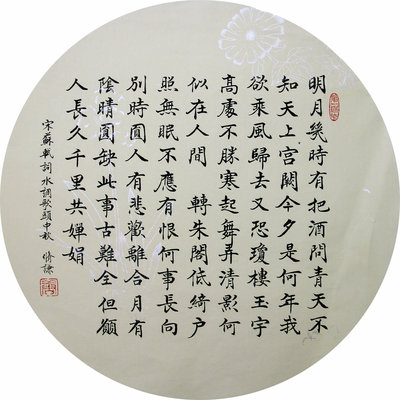 明月幾時有把酒問青天不
知天上宫闕今夕是何年我
欲乘風歸去又恐瓊樓玉宇
高處不勝寒起舞弄清影何
似在人間 轉朱閣低綺户
照無眠不應有恨何事長向
别時圓人有悲歡離合月有
陰晴圓缺此事古難全但願
人長久千里共嬋娟
宋蘇軾詞水調歌頭中秋